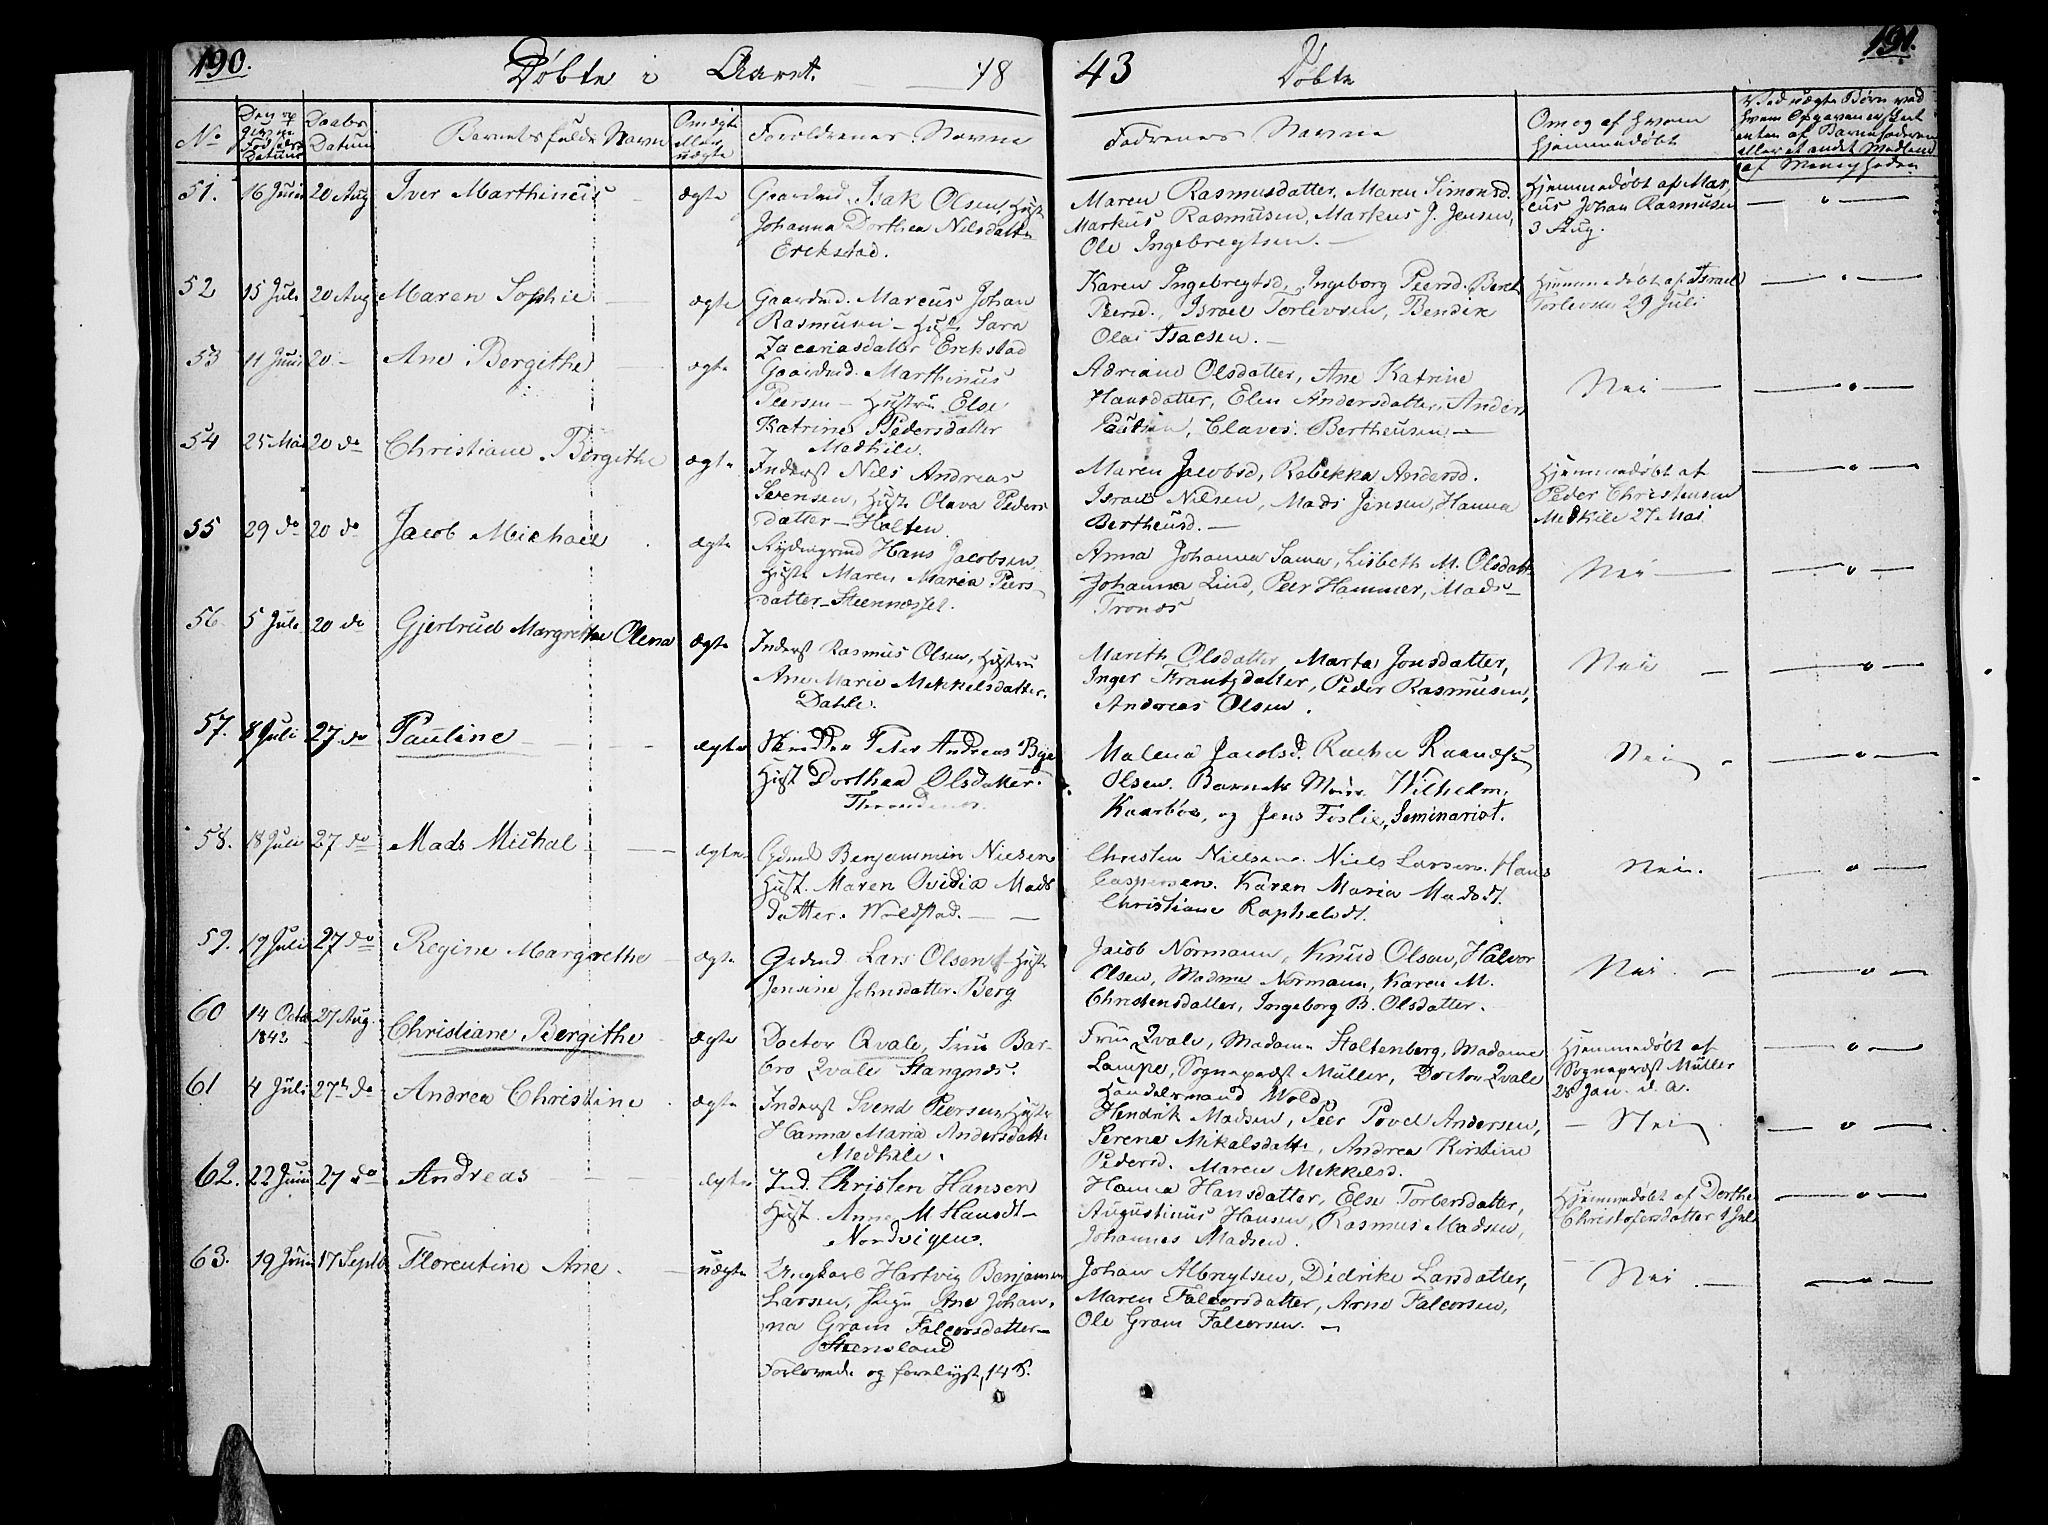 190.
Døbte i Aaret.
18
43
Døbte
191.
No
Datum
Daabs
Datum
Barnets fulde Navn
Om ægte
eller
uægte
Forældrenes Navne
Fadrenes Navne
Om og af hvem
hjemmedøbt
af Menigheden
51. 16 Juni 20 Aug Iver Marthinus ægte
Gaardmd. Isak Olsen, Hust.
Johanna Dorthea Nilsdatter
Erekstad.
Maren Rasmusdatter, Maren Simonsd.
Markus Rasmusen, Markus J. Jensen,
Ole Ingebregtsen.
Hjemmedøbt af Mar-
cus Johan Rasmusen
3 Aug.
52 15 Juli 20 Aug Maren Sophie ægte
Gaardmd. Marcus Johan
Rasmusen - Hust. Sara
Zacariasdatter Erekstad
Karen Ingebregtsd., Ingeborg Peersd. Beret
Peersd., Israel Torlevsen, Bendix
Olai Isacsen.
Hjemmedøbt af Israel
Torlevsen 29 Juli
53 11 Juni 20 - Ane Bergithe ægte
Gaardmd. Marthinus
Peersen - Hustru Else
Katrine Pedersdatter
Medkile.
Adriane Olsdatter, Ane Katrine
Hansdatter, Elen Andersdatter, Anders
Paulsen, Claves Bertheusen
Nei
54 25 Mai 20 do Christiane Bergithe ægte
Inderst Nils Andreas
Svensen, Hust. Olava Peders
datter - Holten.
Maren Jacobsd., Rebekka Andersd.
Israel Nilsen, Mads Jensen, Hanna
Bertheusd.
Hjemmedøbt af
Peder Christensen
Medkile 27 Mai
55 29 do 20 do Jacob Michael ægte
Hans Jacobsen
Hust. Maren Maria Peers-
datter - Steennesset.
Anna Johanna Sama, Lisbeth M. Olsdatt.
Johanna Lind, Peer Hammer, Mads
Tronds
Nei
56 5 Juli 20 do Gjertrud Margrethe Olena ægte
Inderst Rasmus Olsen, Hustru
Ane Marie Mekkelsdatter.
Dahle.
Marith Olsdatter, Marta Jonsdatter,
Inger Frantzdatter, Peder Rasmusen,
Andreas Olsen.
Nei
57. 8 Juli 27 do Pauline ægte
Skredder Peter Andreas Bye
Hust Dorthea Olsdatter.
Throndenes.
Malena Jacobsd. Rachel
Olsen. Barnets Moer. Wilhelm
Kaarbøe, og Jens Foslie, Seminarist.
Nei
58. 18 Juli 27 do Mads Michal ægte
Gdmd Benjammin Nielsen
Hust. Maren Ovidia Mads
datter. Woldstad.
Christen Nielsen. Niels Larsen. Hans
Caspersen. Karen Maria Madsdt.
Christiane Raphelsdt.
Nei.
59. 19 Juli 27 do Regine Margrethe ægte
Grdmd Lars Olsen, Hust.
Jensine Johnsdatter. Berg
Jacob Normann, Knud Olsen, Halvor
Olsen, Madme Normann, Karen M.
Christensdatter, Ingeborg B. Olsdatter.
Nei.
60 14 Octb. 1842 27 Aug. Christiane Bergithe ægte
Doctor Qvale, Frue Bar-
bro Qvale Stangnæs.
Frue Qvale, Madame Stoltenberg, Madame
Lampe, Sognepræst Müller, Doctor Qvale
Handelsmand Wold.
Hjemmedøbt af
Sognepræst Müller
28 Jan. d. A.
61 4 Juli 27 do Andrea Christine ægte
Inderst Svend Peersen, Hust.
Hanna Maria Andersdatt.
Medkile.
Hendrik Madsen, Peer Povel Andersen,
Serene Mikalsdatt., Andrea Kirstine
Pedersd. Maren Mekkelsd.
Nei
62. 22 Juni 27 do Andreas ægte
Ind. Christen Hansen
Hust. Anne M Hansdt
Nordvigen.
Hanna Hansdatter, Else Torbersdatter,
Augustinus Hansen, Rasmus Madsen,
Johannes Madsen.
Hjemmedøbt af Dorthe
Christofersdatter 1 Juli
63. 19 Juni 17 Septb Florentine Ane uægte
Ungkarl Hartvig Benjamin
Larsen, Pige Ane Johan-
na Gram Falcorsdatter
Steensland
Forlovede og forelyst, 14 S.
Johan Albregtsen, Didrike Larsdatter,
Maren Falcorsdatter, Arne Falcorsen,
Ole Gram Falcorsen.
Nei